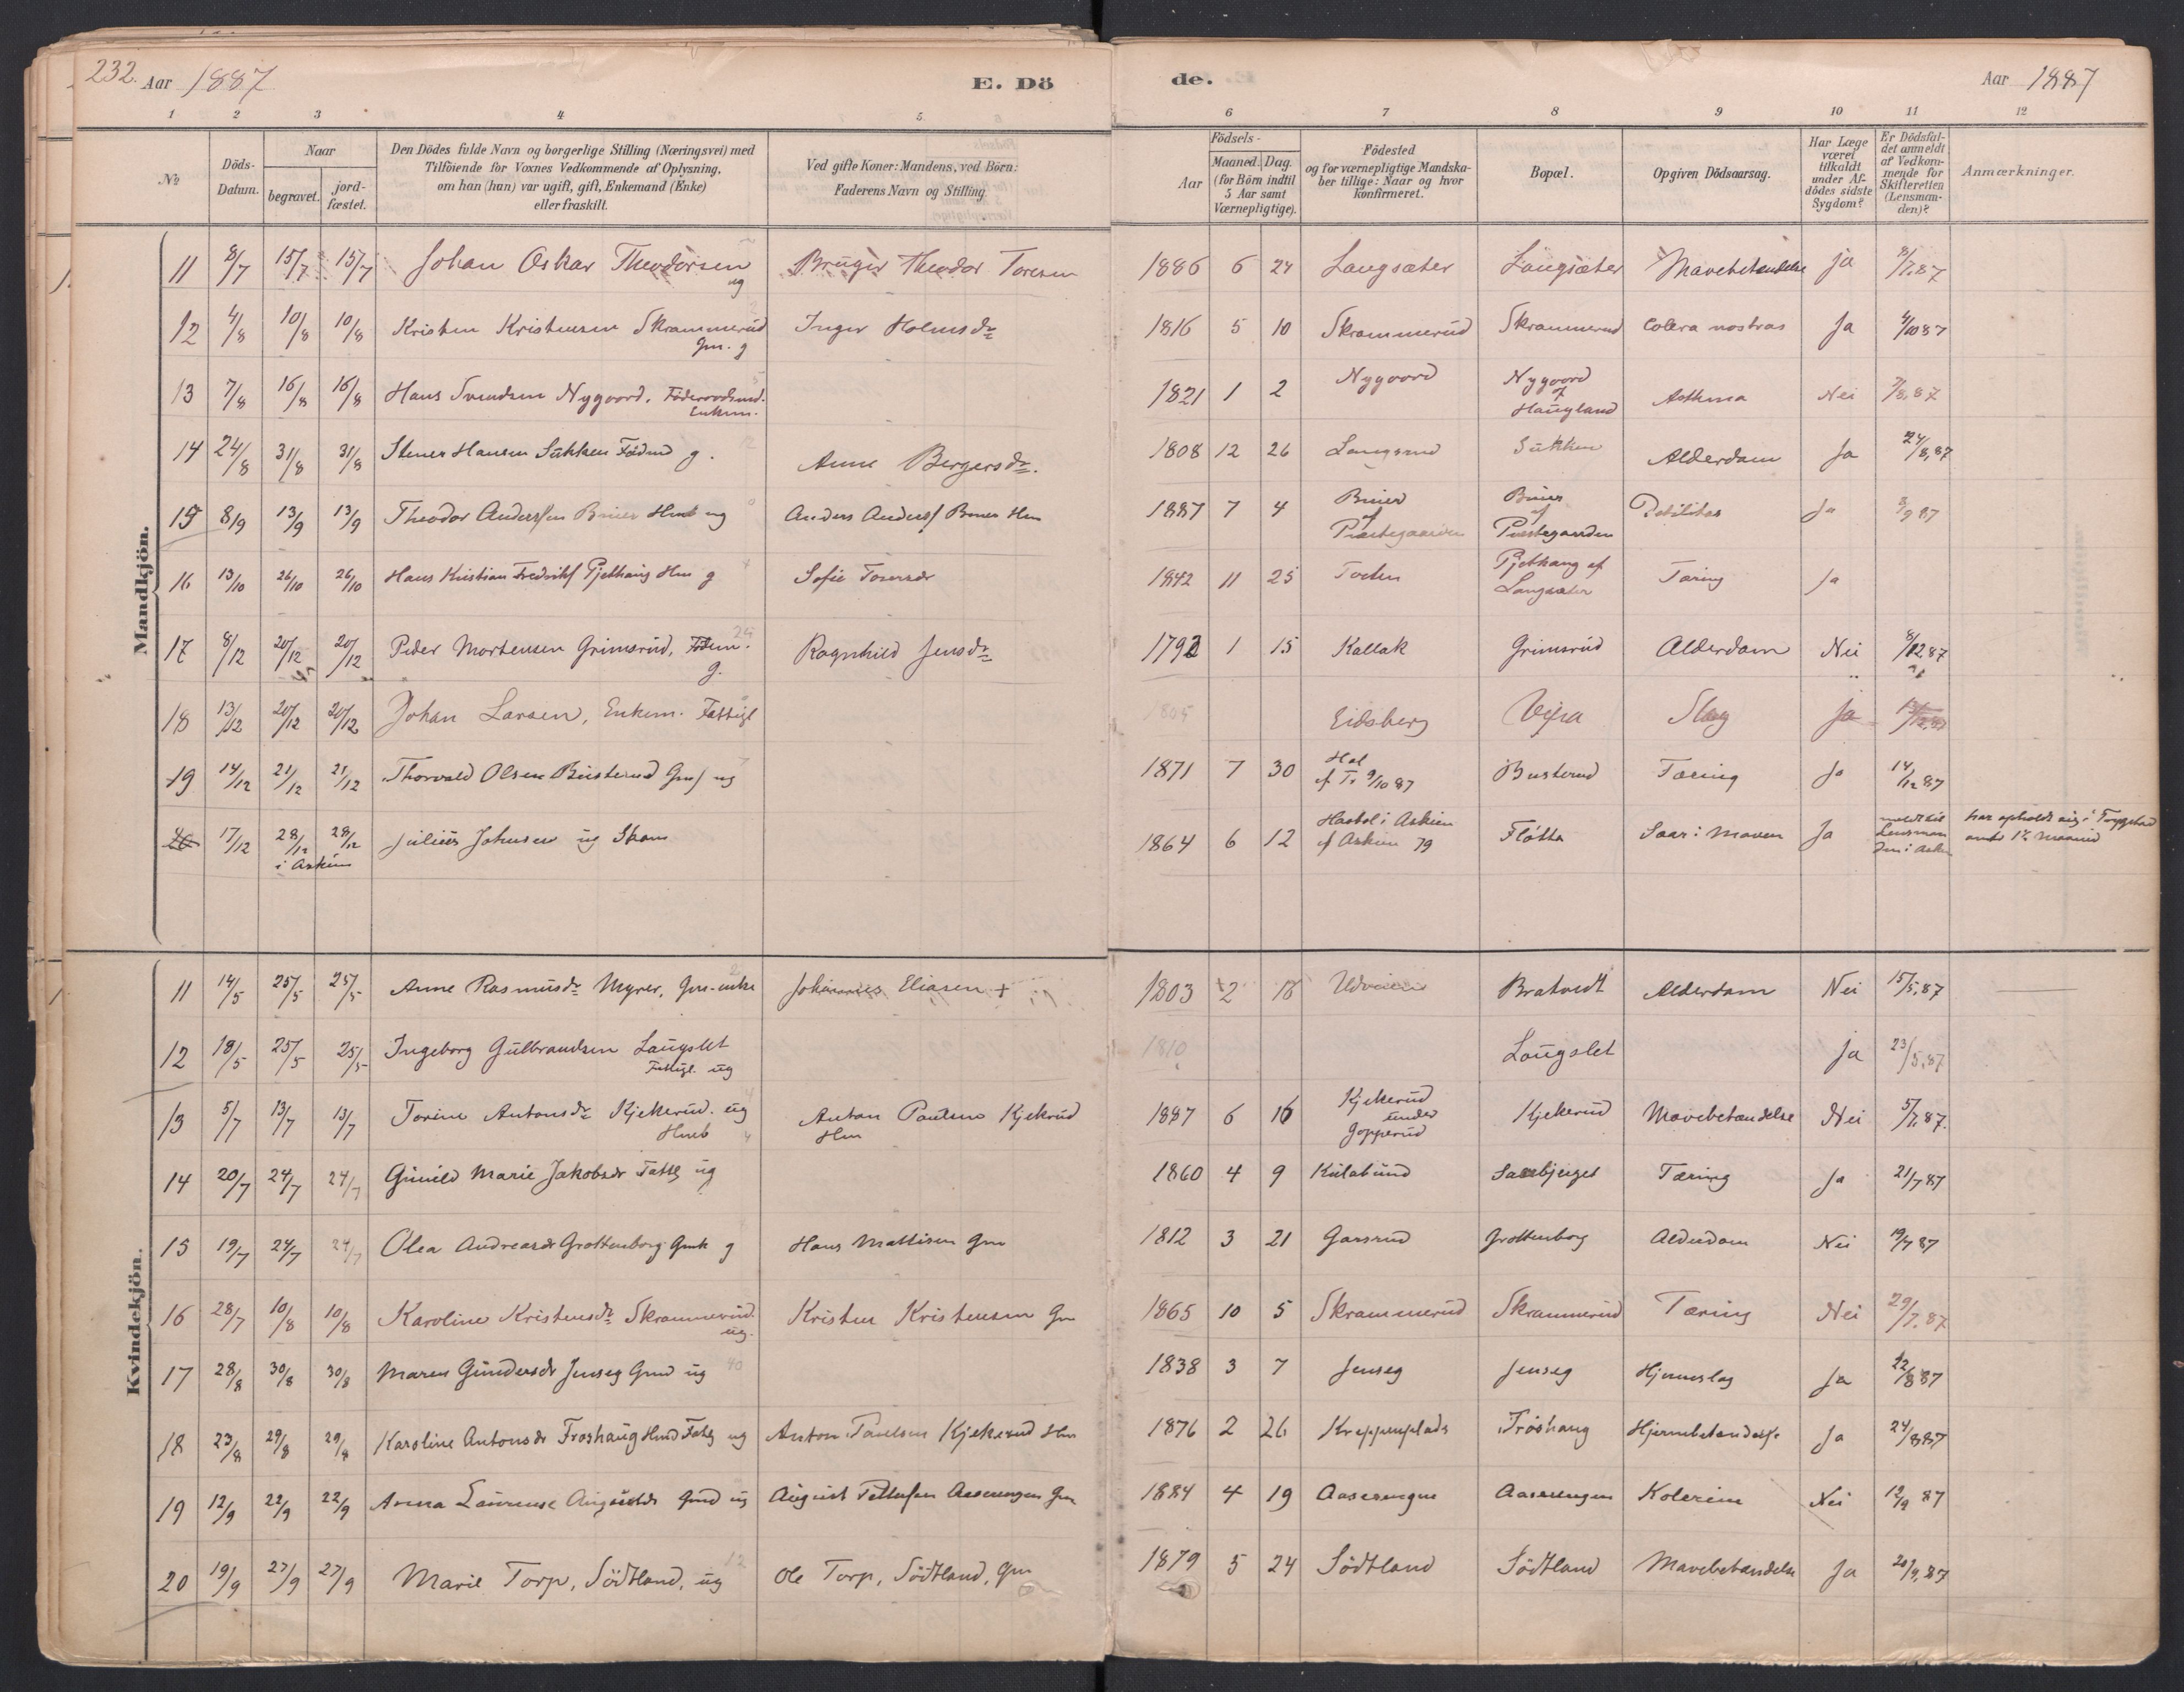 232. Aar 1887 E. Dö
1 2 3 4 5
No
Döds-Datum.
Naar
begravet.
jord-fæstet.
Den Dödes fulde Navn og borgerlige Stilling (Næringsvei) med
Tilföiende for Voxnes Vedkommende af Oplysning,
om han (hun) var ugift, gift, Enkemand (Enke)
eller fraskilt.
Ved gifte Koner: Mandens, ved Börn:
Faderens Navn og Stilling.
Mandkjön.
11 8/7 15/7 15/7 Johan Oskar Theodorsen Bruger Theodor Toresen
ug
12 4/8 10/8 10/8 Kristen Kristensen Skrammerud Inger Holmsdr
Gm. g
13 7/8 16/8 16/8 Hans Svendsen Nygoord.
Enkem.
14 24/8 31/8 31/8 Stener Hansen Sukken g. Anne Bergersdr.
15 8/9 13/9 13/9 Theodor Anderssen ug Anders
16 13/10 26/10 26/10 Hans Kristian g Sofie
17 8/12 20/12 20/12 Peder Mortensen Grimsrud, Ragnhild Jensdr
g.
18 13/12 20/12 20/12 Johan Larsen, Enkem. Fattigl
19 14/12 21/12 21/12 Thorvald Olsen Busterud ug
20 17/12 28/12 28/12 Julius Johnsen ug
i Askim
Kvindekjön.
11 14/5 25/5 25/5 Anne Rasmusdr Myrer, Johannes Eliasen +
12 18/5 25/5 25/5 Ingeborg Gulbrandsen Laugslet
Fattigl. ug
13 5/7 13/7 13/7 Torine Antonsdr Kjekerud. ug Anton Paulsen Kjekrud
Hm
14 20/7 24/7 24/7 Gunild Marie Jakobsdr ug
15 19/7 24/7 24/7 Olea Andreasdr Grottenborg g Hans Mattisen Gm
16 28/7 10/8 10/8 Karoline Kristensdr Skrammerud Kristen Kristensen Gm
ug.
17 28/8 30/8 30/8 Maren Gundersdr Jenseg ug
18 23/8 29/8 29/8 Karoline Antonsdr Froshaug ug Anton Paulsen Kjekerud Hm
19 12/9 22/9 22/9 Anna Laurense ug August
20 19/9 27/9 27/9 Marie Torp, Södtland, ug Ole Torp, Södtland, Gm
de. Aar 1887
6 7 8 9 10 11 12
Aar
Födsels-
Maaned. Dag.
(for Börn indtil
5 Aar samt
Værnepligtige).
Födested
og for værnepligtige Mandska-
ber tillige: Naar og hvor
konfirmeret.
Bopæl.
Opgiven Dödsaarsag.
Har Læge
været
tilkaldt
under Af-
dödes sidste
Sygdom?
Er Dödsfal-
det anmeldt
af Vedkom-
mende for
Skifteretten
(Lensman-
den)?
Anmærkninger.
1886 6 24 Langsæter Langsæter Mavebetændelse ja 8/7.87
1816 5 10 Skrammerud Skrammerud Colera nostras Ja
1821 1 2 Nygoord Nygoord Asthma Nei 7/8.87
af
Haugland
1808 12 26 Langsrud Sukken Alderdom Ja 24/8.87
1887 7 4 Debilitas Ja 8/9 87
af af
Præstegaarden Præstegaarden
1842 11 25 Toten af Tæring Ja
Langsæter
1792 1 15 Kallak Grimsrud Alderdom Nei 8/12.87
1805 Eidsberg Slag Ja 13/12.87
1871 7 30 9/10 87 Busterud Tæring Ja 14/12 87
1864 6 12 Flötta Saar i Maven Ja
1803 2 18 Bratvedt Alderdom Nei 15/5.87
1810 Laugslet ja 23/5.87
1887 6 16 Kjekerud Kjekerud Mavebetændelse Nei 5/7.87.
under
Gopperud
1860 4 9 Tæring Ja 21/7 87
1812 3 21 Garsrud Grottenborg Alderdom Nei 19/7 87
1865 10 5 Skrammerud Skrammerud Tæring Nei 29/7.87
1838 3 7 Jenseg Jenseg Hjerneslag Ja
1876 2 26 Froshaug Ja 24/8 87
1884 4 19 Kolerine Nei 12/9 87
1879 5 24 Södtland Södtland Mavebetændelse Ja 20/9.87